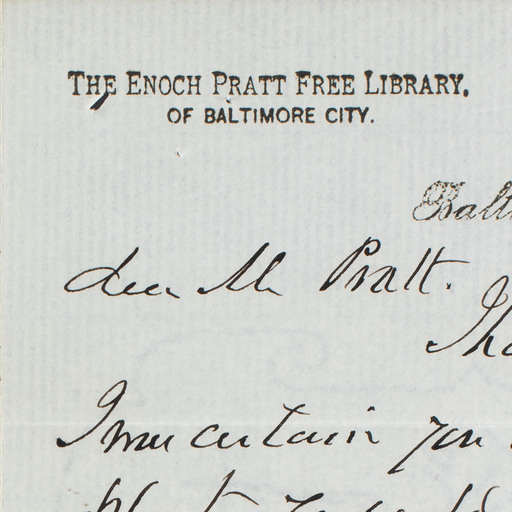 THE ENOCH PRATT FREE LIBRARY,
OF BALTIMORE CITY.
Balt
dear Mr Pratt.
I was certain you